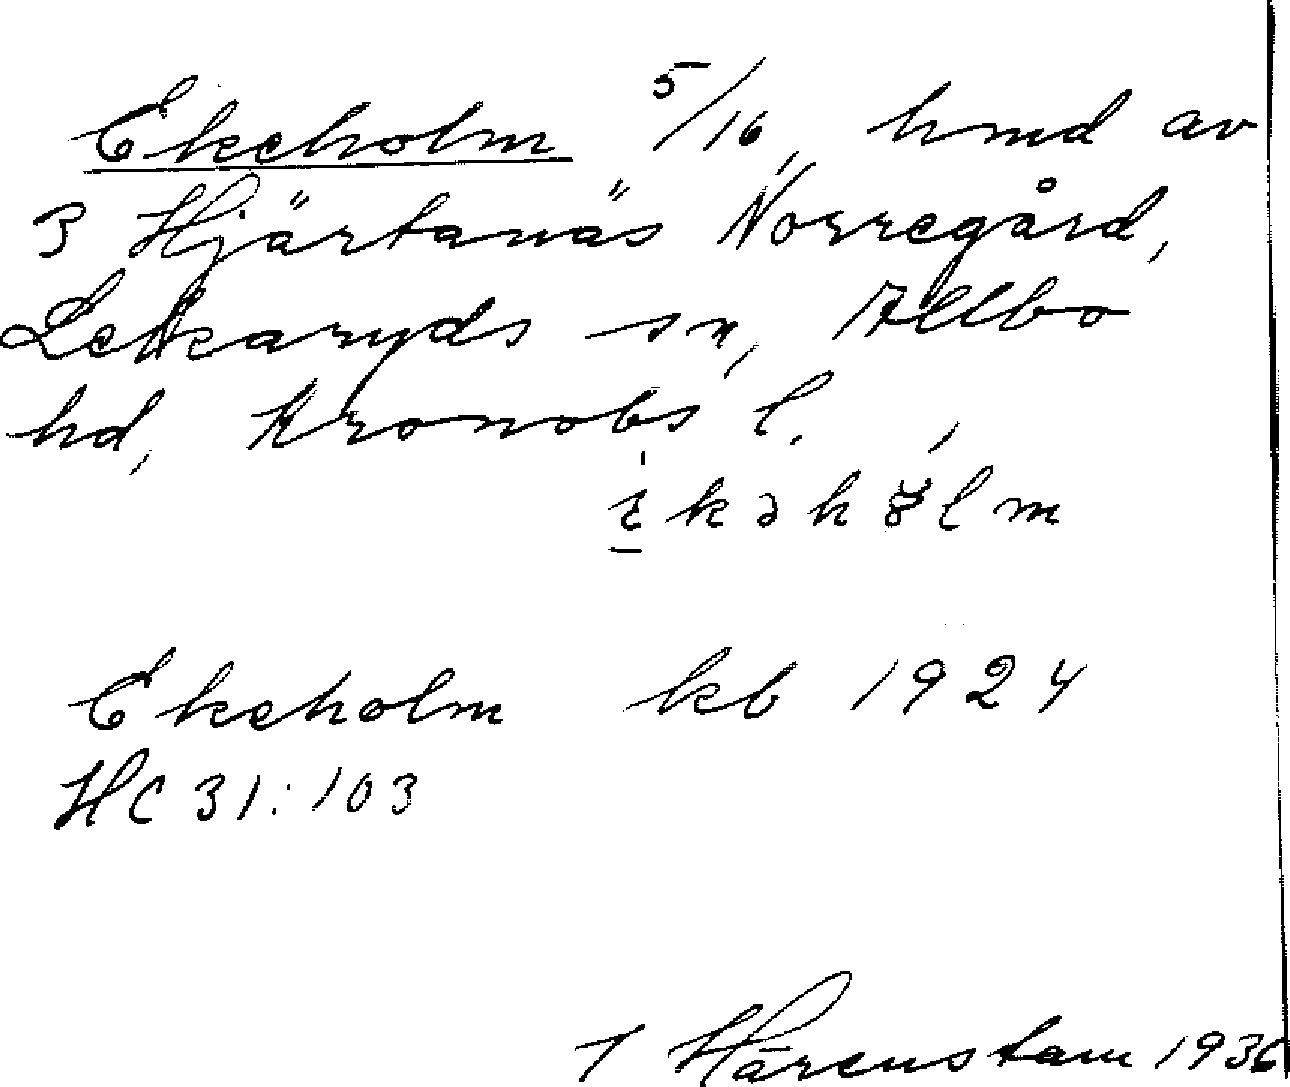 Ekeholm 5/16, hmd av
3 Hjärtanäs Norregård,
Lekaryds sn, Allbo
hd, Kronobs l.
Ekeholm kb 1924
HC 31:103
J Hårenstam 1936